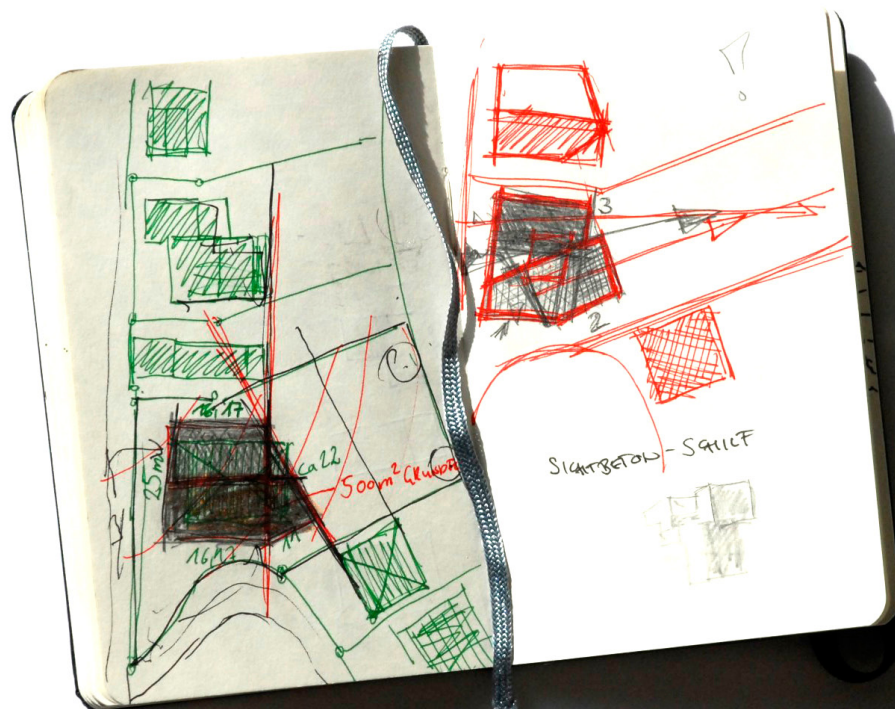 16,17
25m
ca 22
500m² GRUNDFL
16,12
11
3
1
2
SICHTBETON - SCHILF